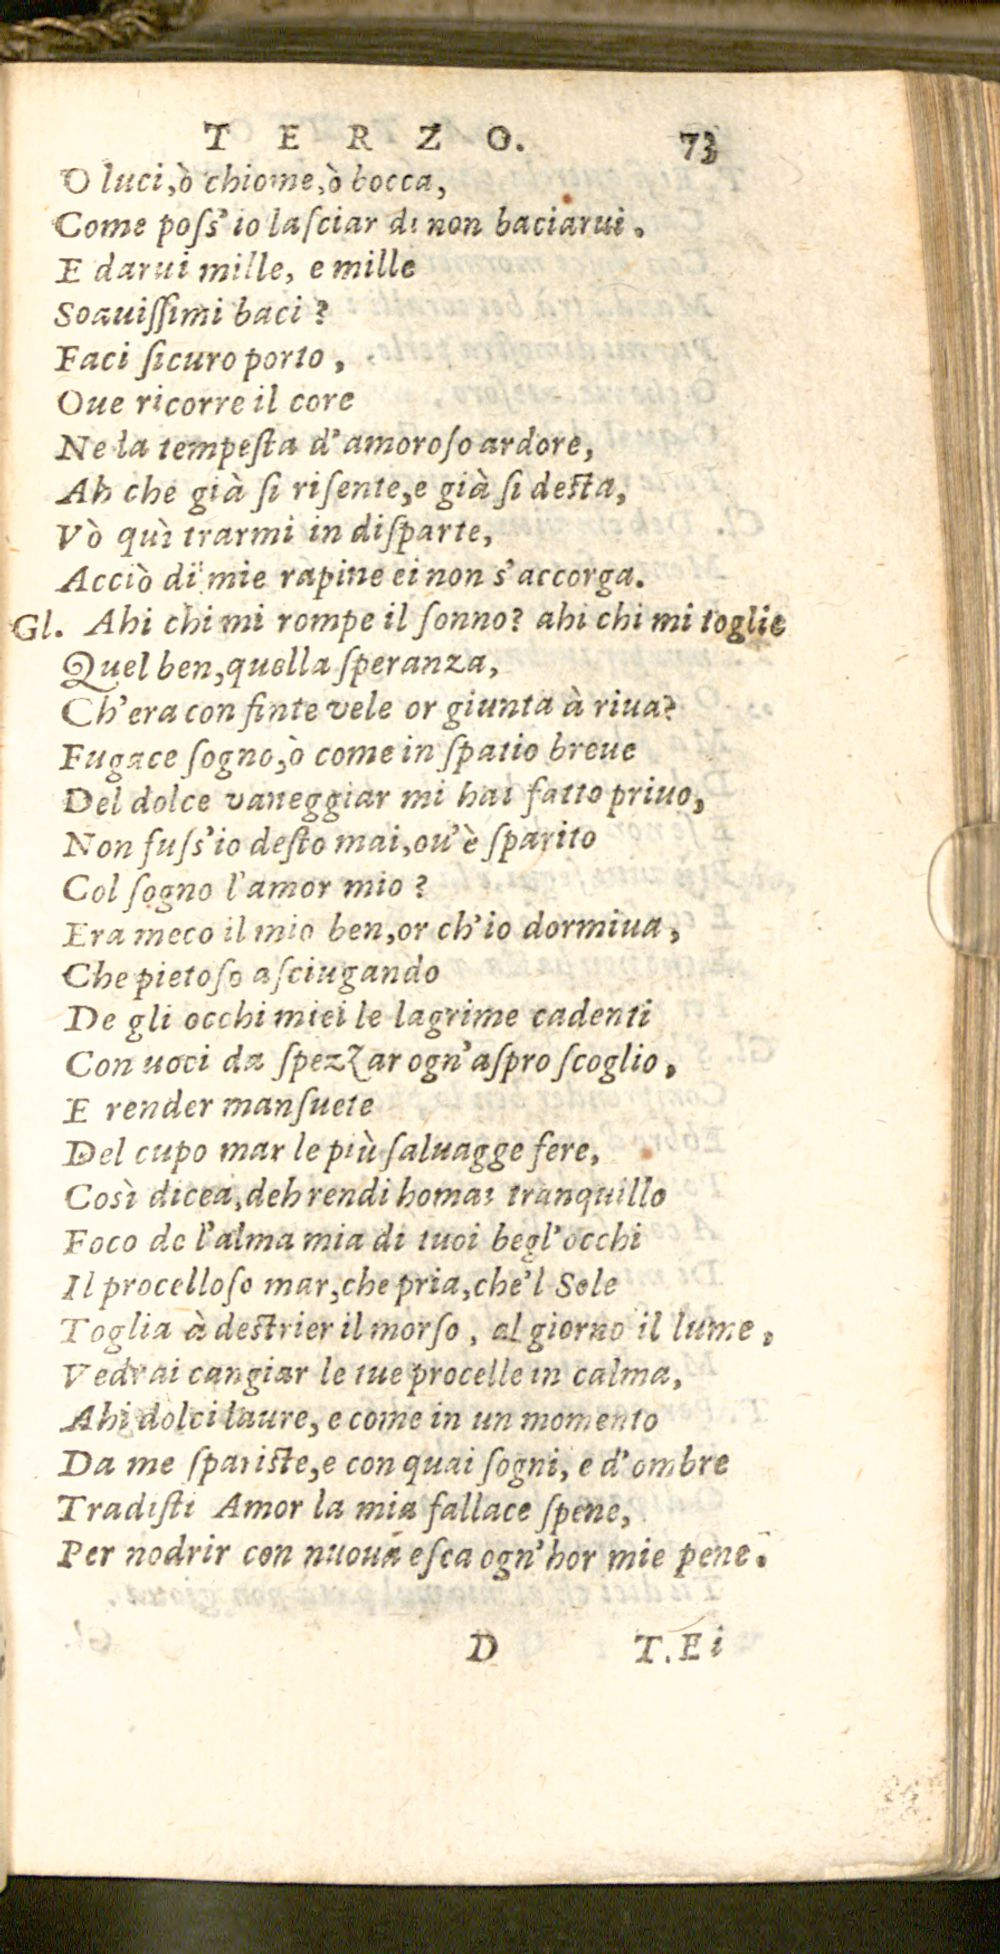 TERZO. 73
O luci, ò chiome, ò bocca,
Come poſs'io laſciar di non baciarui.
E darui mille, e mille
Soauiſſimi baci?
Faci ſicuro porto,
Oue ricorre il core
Ne la tempeſta d'amoroſo ardore,
Ah che già ſi riſente, e già ſi deſta,
Vò quì trarmi in diſparte,
Acciò di mie rapine ei non s'accorga.
Gl. Ahi chi mi rompe il ſonno? ahi chi mi toglie
Quel ben, quella ſperanza,
Ch'era con finte vele or giunta à riua?
Fugace ſogno, ò come in ſpatio breue
Del dolce vaneggiar mi hai fatto priuo,
Non fuſs'io deſto mai, ou'è ſparito
Col ſogno l'amor mio?
Era meco il mio ben, or ch'io dormiua,
Che pietoſo aſciugando
De gli occhi miei le lagrime cadenti
Con uoci da ſpezzar ogn'aſpro ſcoglio,
E render manſuete
Del cupo mar le più ſaluagge fere,
Così dicea, deh rendi homai tranquillo
Foco de l'alma mia di tuoi begl'occhi
Il procelloſo mar, che pria, che'l Sole
Toglia à deſtrier il morſo, al giorno il lume,
Vedrai cangiar le tue procelle in calma,
Ahi dolci laure, e come in un momento
Da me ſpariſte, e con quai ſogni, e d'ombre
Tradiſti Amor la mia fallace ſpene,
Per nodrir con nuoua eſca ogn'hor mie pene.
D T. Ei